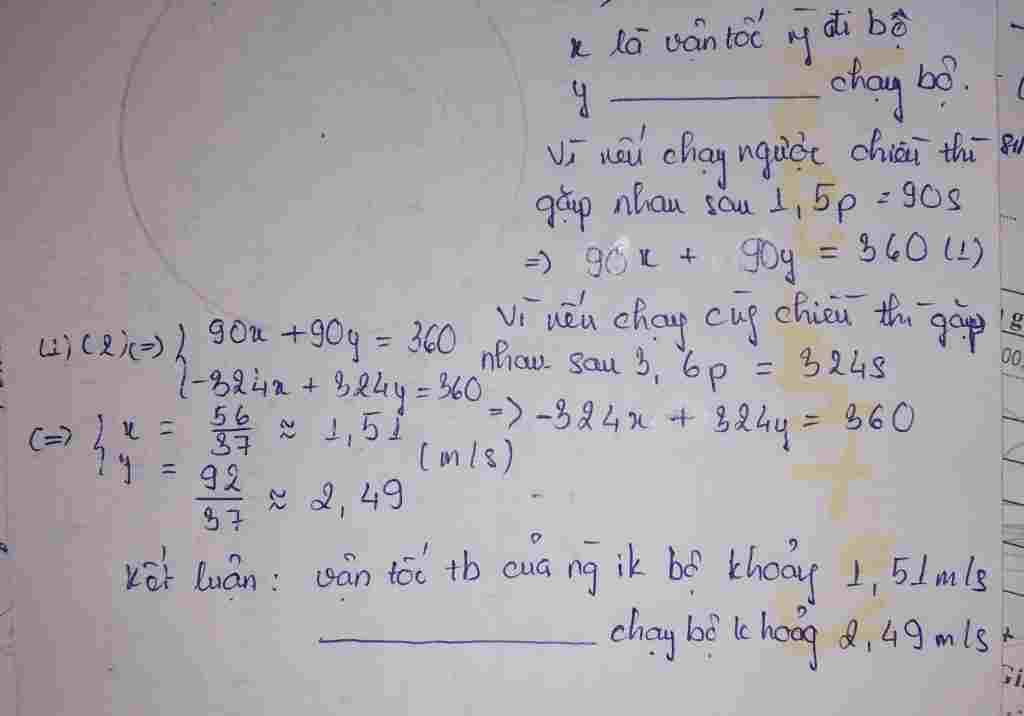 x là vận tốc ng̃ đi bộ
y ______ chạy bộ.
Vì nếu chạy ngược chiều thì
gặp nhau sau 1,5p = 90s
=> 90x + 90y = 360 (1)
Vì nếu chạy cùg chiều thì gặp
nhau sau 3,6p = 324s
=> -324x + 324y = 360
(1)(2)(=> { 90x + 90y = 360
{ -324x + 324y = 360
(=> { x = 56/37 ≈ 1,51
{ y = 92/37 ≈ 2,49
(m/s)
Kết luận: vận tốc tb của ng̃ ik bộ khoảg 1,51m/s
______ chạy bộ khoảg 2,49m/s